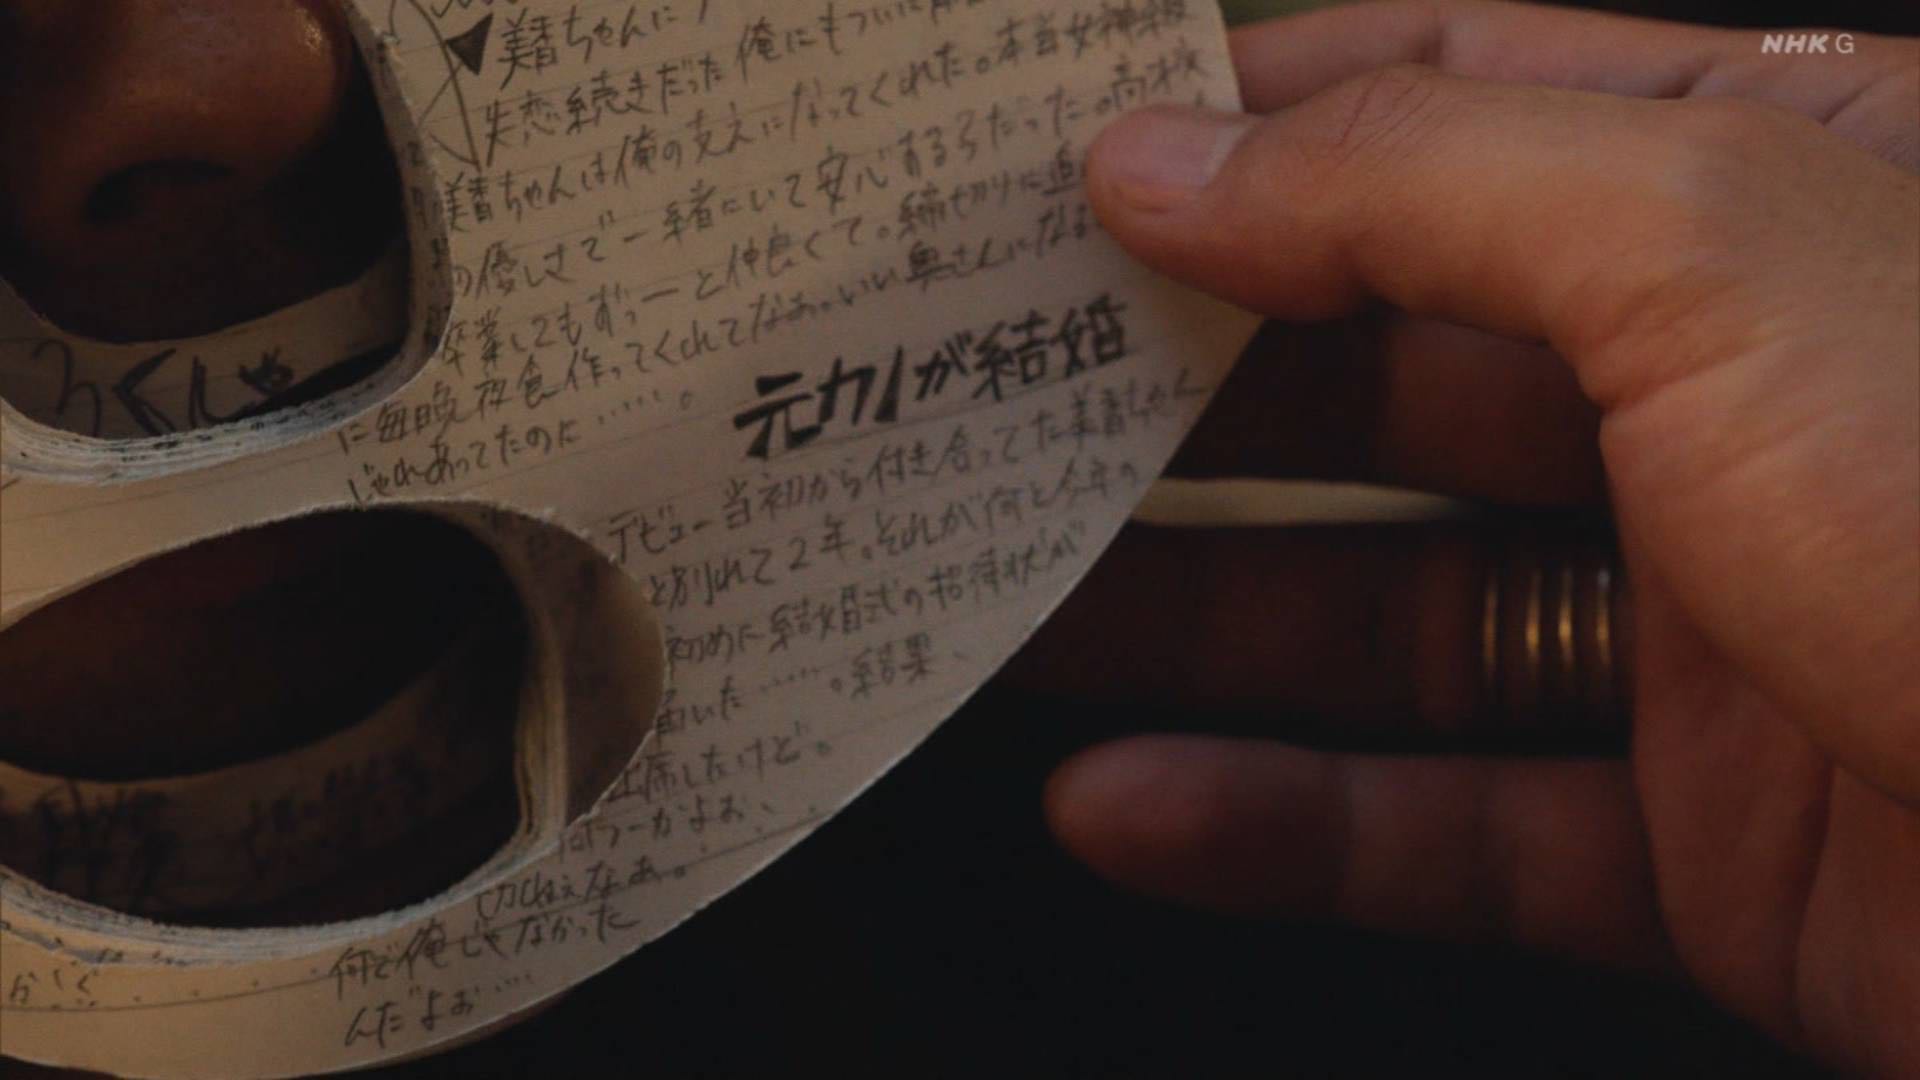 NHK G
美香ちゃんに
失恋続きだった俺にもついに
美香ちゃんは俺の支えになってくれた。本当女神級
の優しさで一緒にいて安心するうだった。高校
卒業してもずっーと仲良くて。締切りに追
に毎晩夜食作ってくれてなあ。いい奥さんになる
じゃれあってたのに……。
元カノが結婚
デビュー当初から付き合ってた美香ちゃん
と別れて2年。それが何と今年の
初めに結婚式の招待状が
届いた……。結果、
出席したけど。
何つーかよぉ、
切ねぇなぁ。
何で俺じゃなかった
んだよぉ…